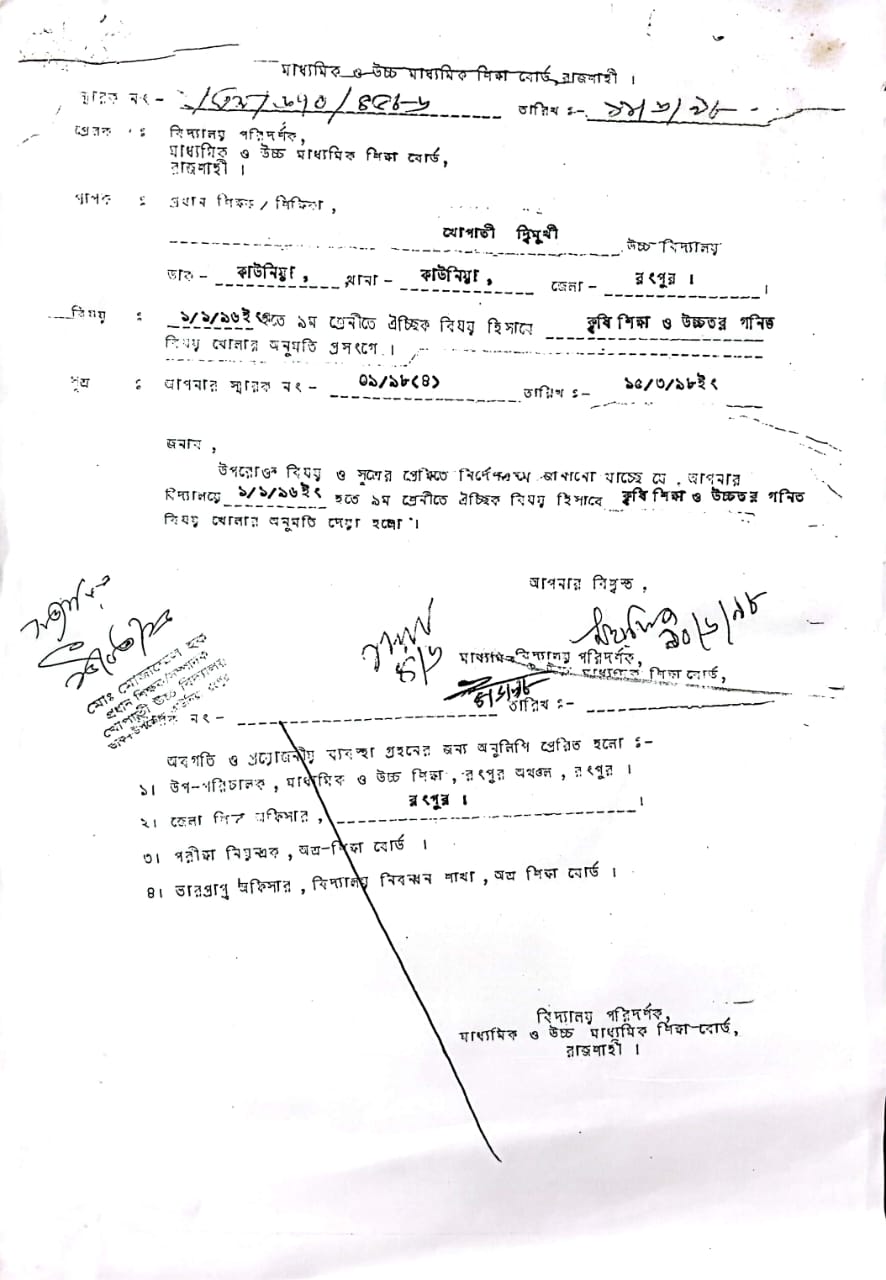 মাধ্যমিক ও উচ্চ মাধ্যমিক শিক্ষা বোর্ড, রাজশাহী ।
স্মারক নং - তারিখ ঃ-
প্রেরক ঃ বিদ্যালয় পরিদর্শক,
মাধ্যমিক ও উচ্চ মাধ্যমিক শিক্ষা বোর্ড,
রাজশাহী ।
প্রাপক ঃ প্রধান শিক্ষক / শিক্ষিকা ,
খোপাতী দ্বিমুখী উচ্চ বিদ্যালয়
ডাক - কাউনিয়া , থানা - কাউনিয়া , জেলা - রংপুর ।
বিষয় ঃ ১/১/৯৬ইং হতে ৯ম শ্রেনীতে ঐচ্ছিক বিষয় হিসাবে কৃষি শিক্ষা ও উচ্চতর গনিত
বিষয় খোলার অনুমতি প্রসংগে ।
সূত্র ঃ আপনার স্মারক নং - ০১/৯৮(৪) তারিখ ঃ- ১৫/৩/৯৮ইং
জনাব ,
উপরোক্ত বিষয় ও সূত্রের প্রেক্ষিতে নির্দেশক্রমে জানানো যাচ্ছে যে , আপনার
বিদ্যালয়ে ১/১/৯৬ইং হতে ৯ম শ্রেনীতে ঐচ্ছিক বিষয় হিসাবে কৃষি শিক্ষা ও উচ্চতর গনিত
বিষয় খোলার অনুমতি দেয়া হলো ।
আপনার বিশ্বস্ত ,
১০/৬/৯৮
৪/৬
মাধ্যমিক বিদ্যালয় পরিদর্শক,
শিক্ষা বোর্ড,
মোঃ মোজাম্মেল হক
প্রধান শিক্ষক
উচ্চ বিদ্যালয়
স্মারক নং - তারিখ ঃ-
অবগতি ও প্রয়োজনীয় ব্যবস্থা গ্রহনের জন্য অনুলিপি প্রেরিত হলো ঃ-
১। উপ-পরিচালক , মাধ্যমিক ও উচ্চ শিক্ষা , রংপুর অঞ্চল , রংপুর ।
২। জেলা শিক্ষা অফিসার , রংপুর । ।
৩। পরীক্ষা নিয়ন্ত্রক , অত্র-শিক্ষা বোর্ড ।
৪। ভারপ্রাপ্ত অফিসার , বিদ্যালয় নিবন্ধন শাখা , অত্র শিক্ষা বোর্ড ।
বিদ্যালয় পরিদর্শক,
মাধ্যমিক ও উচ্চ মাধ্যমিক শিক্ষা বোর্ড,
রাজশাহী ।